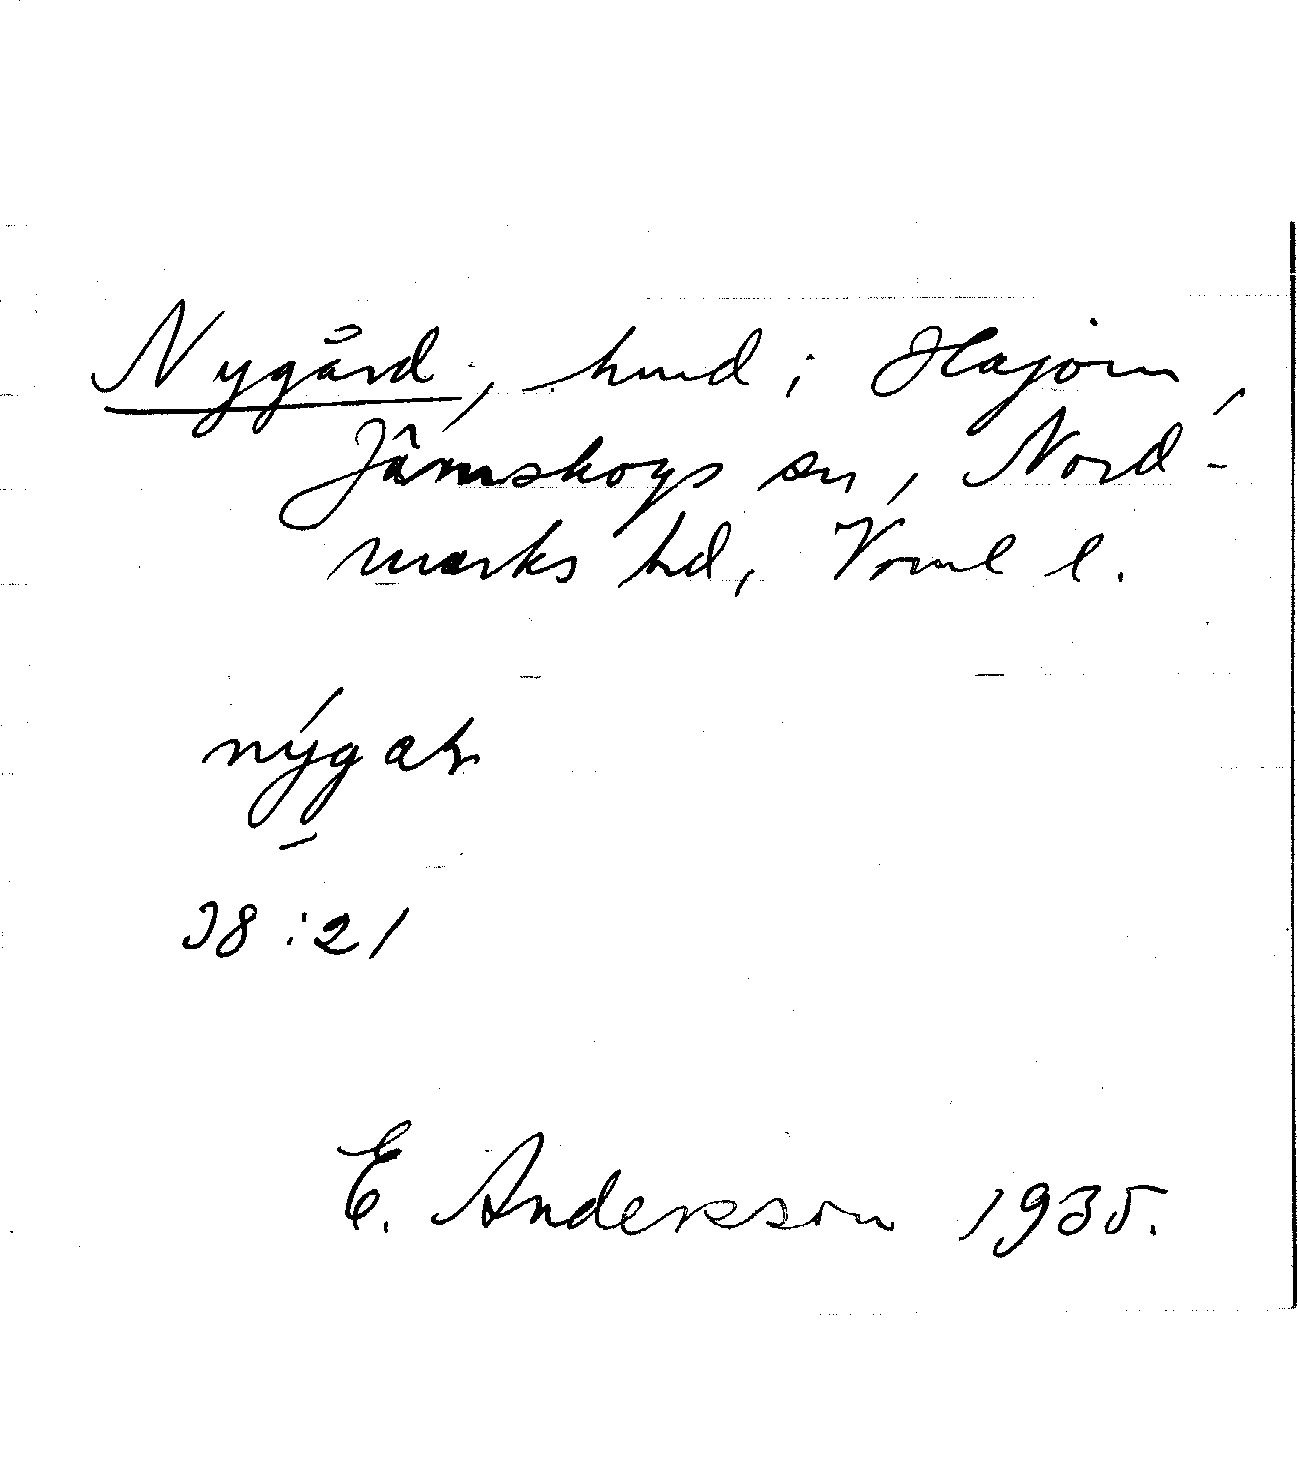 Nygård, hmd i Häjorn,
Järnskogs sn, Nord-
marks hd, Vrml l.
nýgaḷ
38:21
E. Andersson 1935.